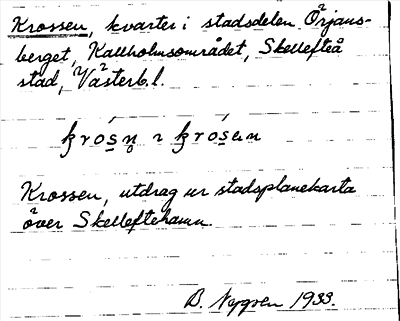 Krossen, kvarter i stadsdelen Örjans-
berget, Kallholmsområdet, Skellefteå
stad, Västerb.l.
krósn̥ ~ krósen
Krossen, utdrag ur stadsplanekarta
över Skelleftehamn.
B. Nygren 1933.